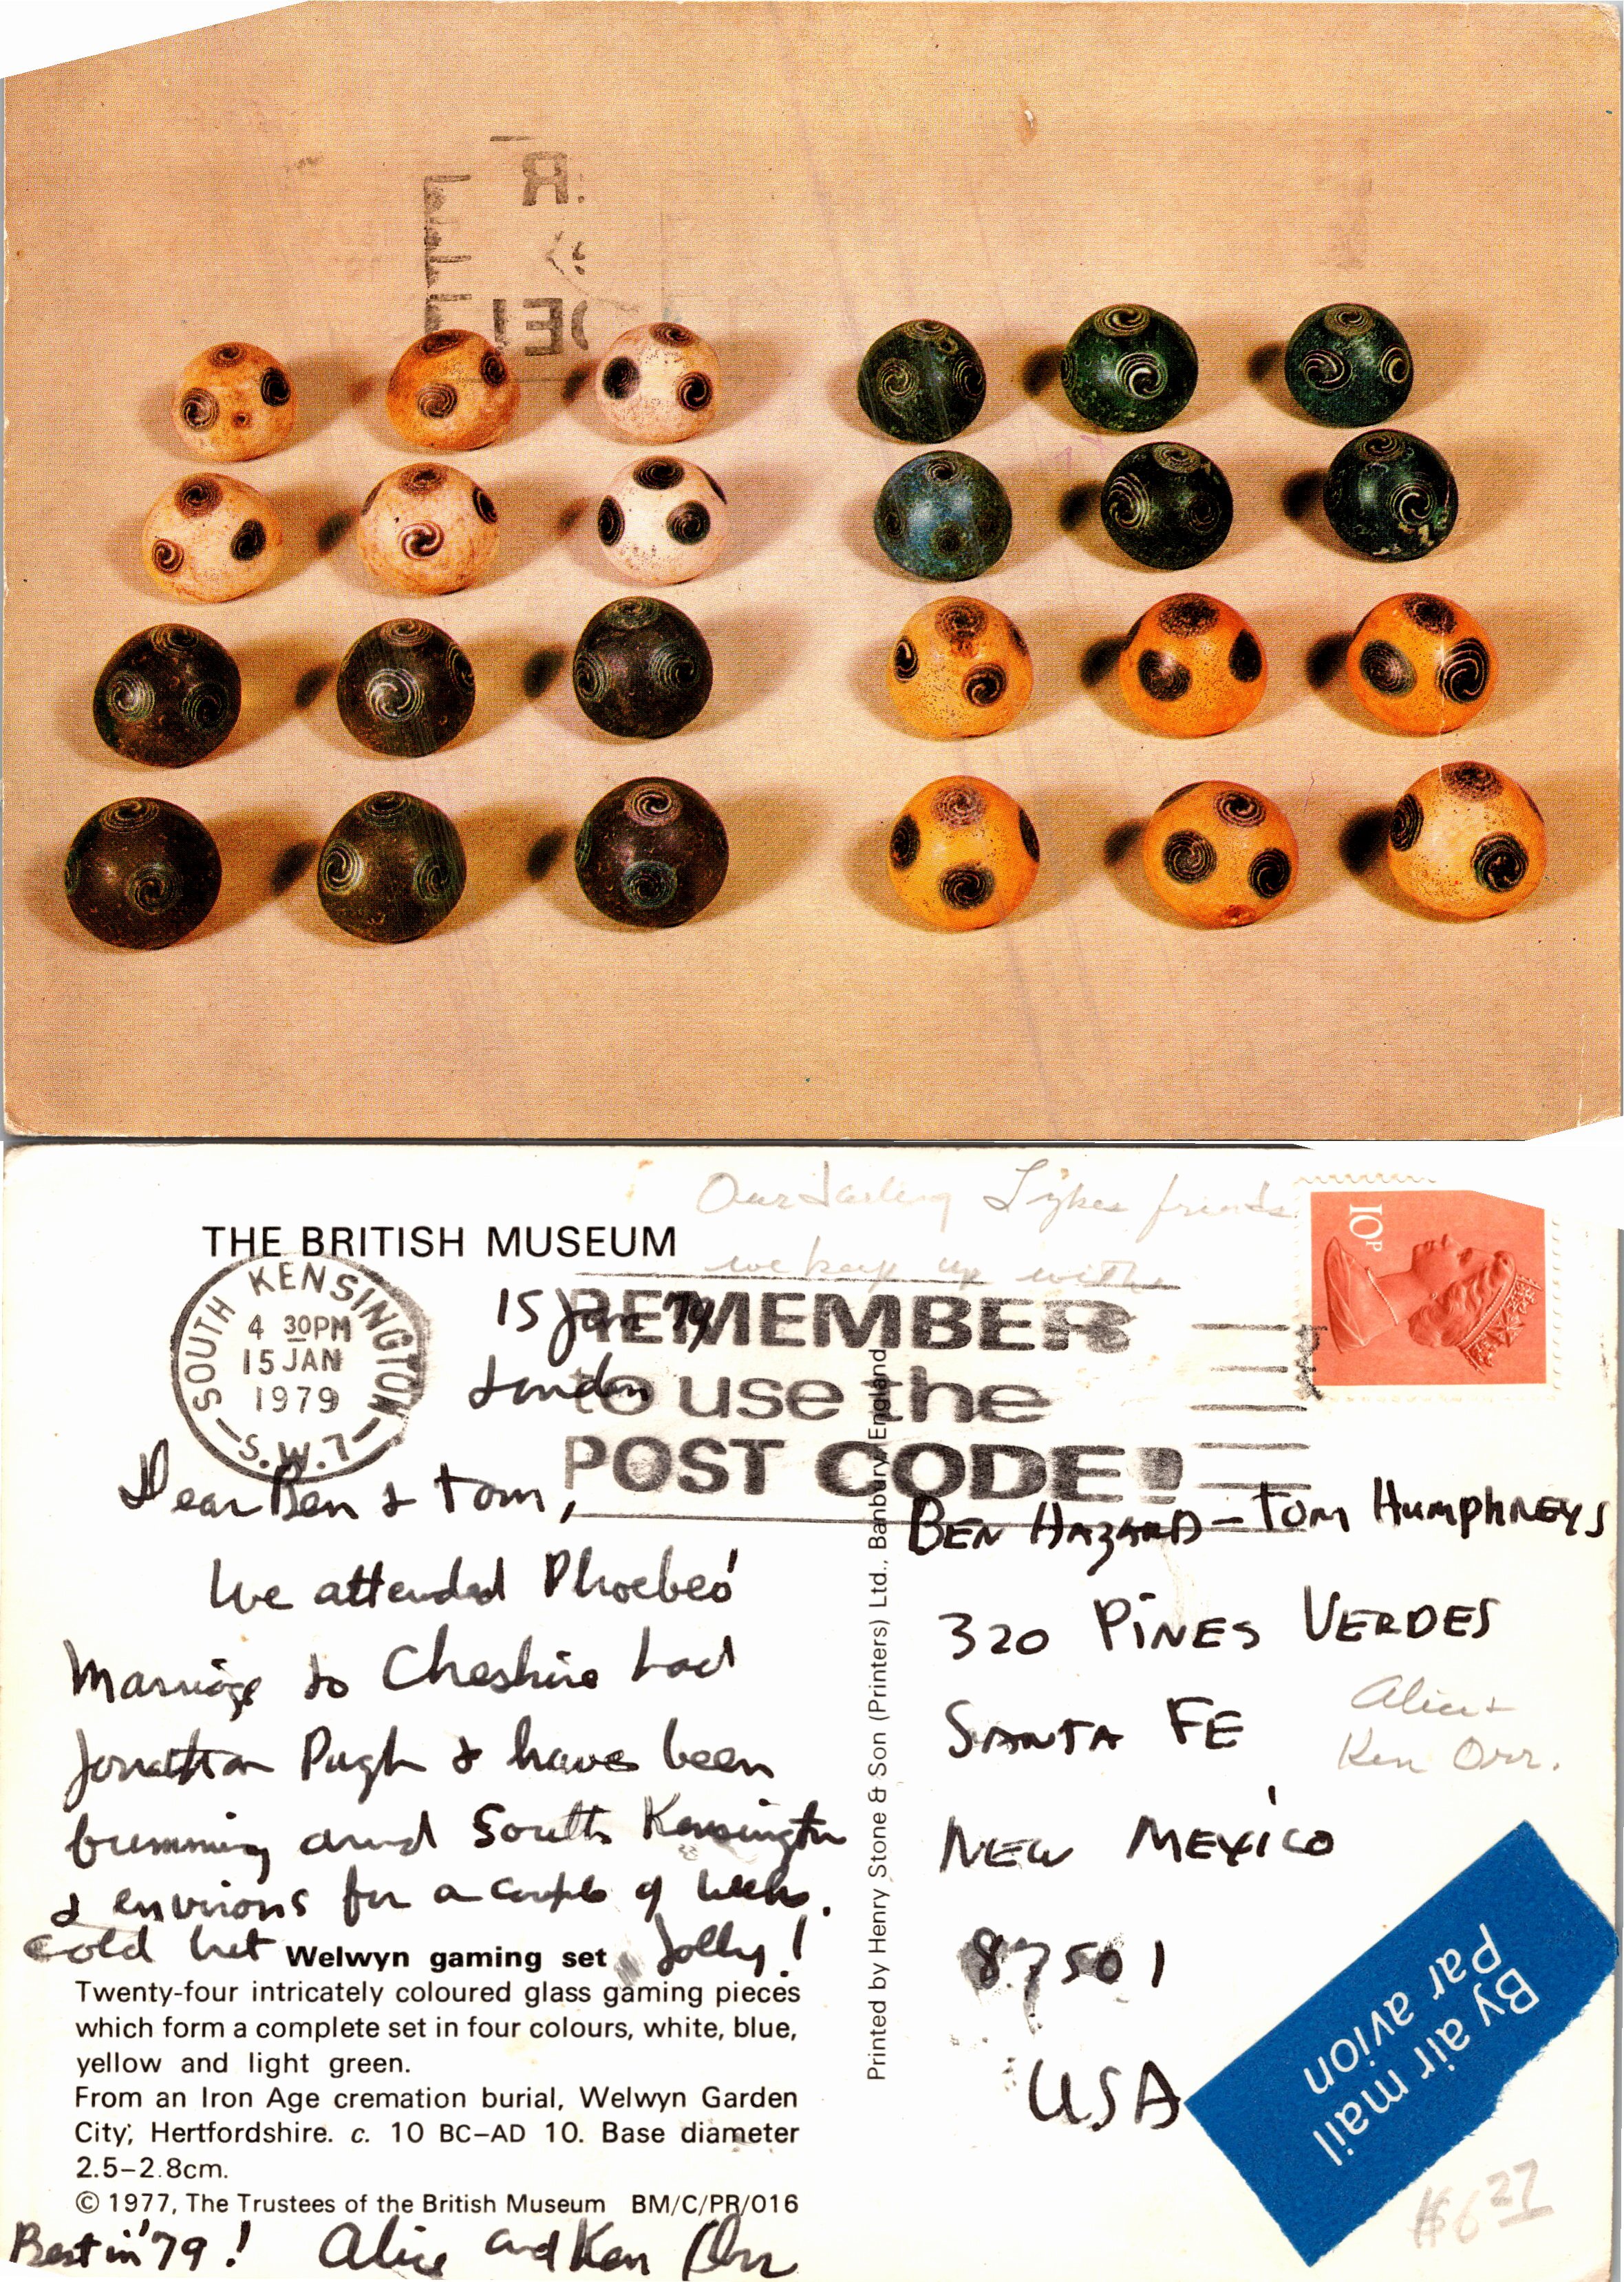 Our darling Sykes friends
we keep up with
THE BRITISH MUSEUM
10P
SOUTH KENSINGTON
4 30PM
15 JAN
1979
S.W.7
REMEMBER
to use the
POST CODE!
15 Jan 79
London
Dear Ben & Tom,
We attended Phoebes'
Marriage to Cheshire lad
Jonathan Pugh & have been
bumming around South Kensington
& environs for a couple of weeks.
Cold but Jolly!
Welwyn gaming set
Twenty-four intricately coloured glass gaming pieces
which form a complete set in four colours, white, blue,
yellow and light green.
From an Iron Age cremation burial, Welwyn Garden
City, Hertfordshire. c. 10 BC–AD 10. Base diameter
2.5–2.8cm.
© 1977, The Trustees of the British Museum BM/C/PR/016
Best in '79! Alice and Ken Orr
Printed by Henry Stone & Son (Printers) Ltd., Banbury, England
BEN HAZARD – TOM HUMPHREYS
320 PINES VERDES
SANTA FE
NEW MEXICO
87501
USA
Alice +
Ken Orr.
By air mail
Par avion
$6 27